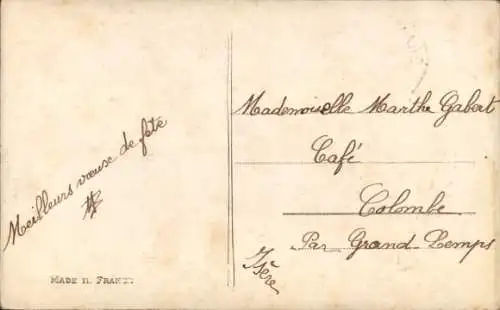 Meilleurs vœux de fête
MADE IN FRANCE
Mademoiselle Marthe Gabert
Café
Colombe
Par Grand-Lemps
Isère